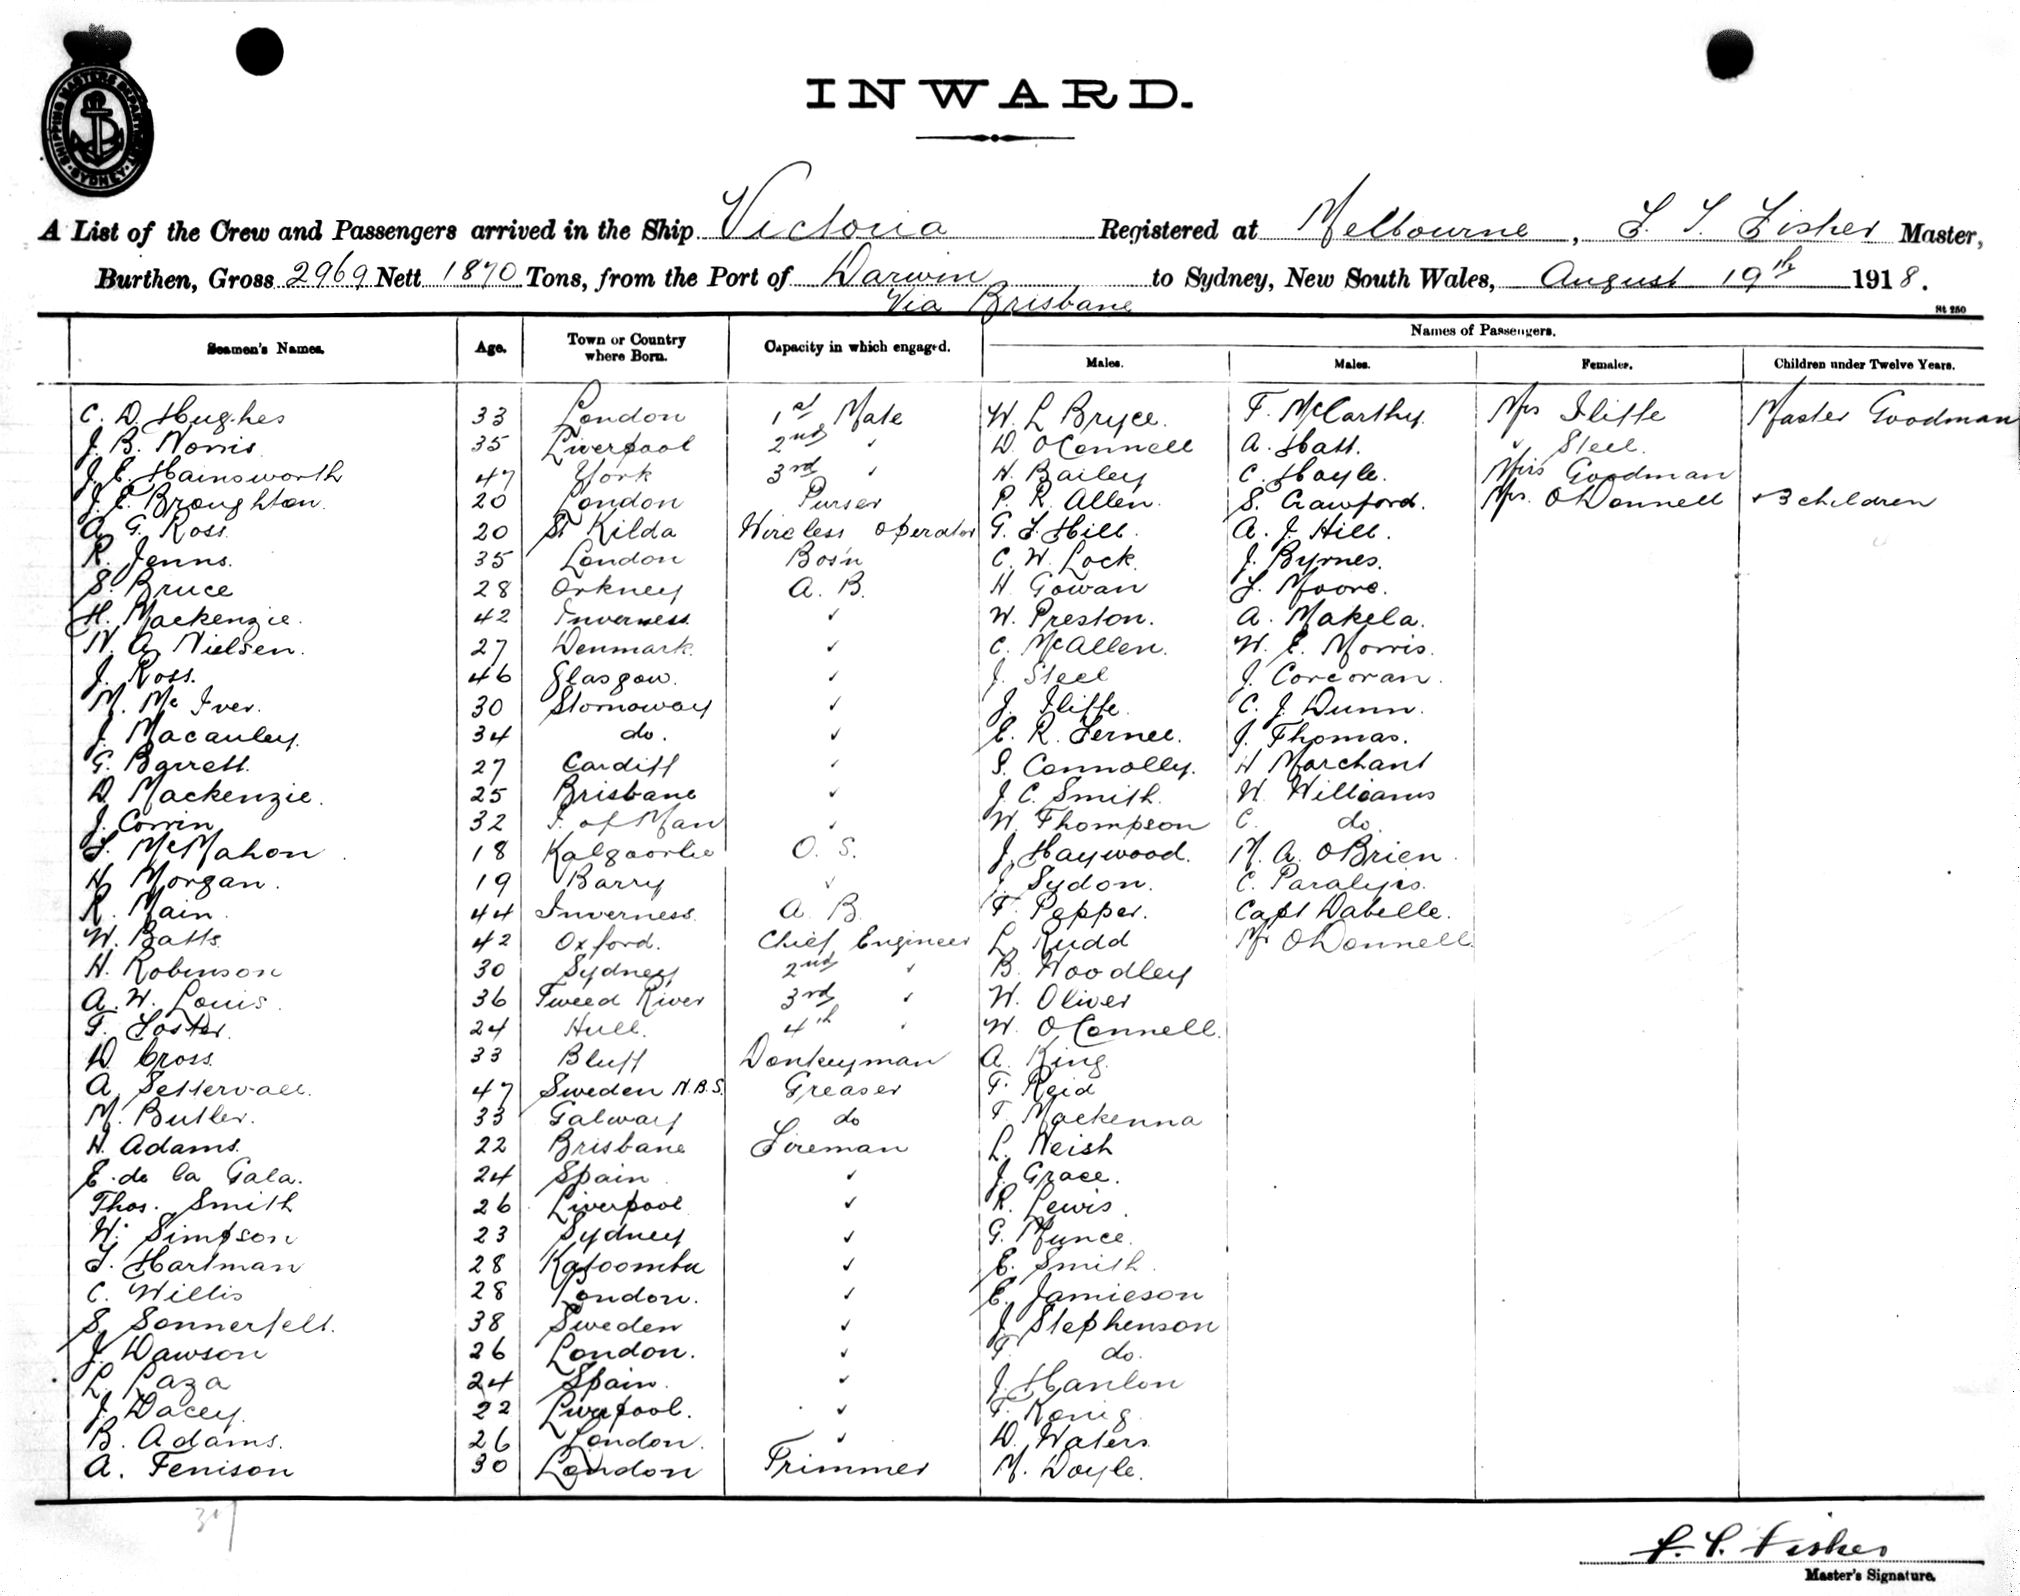 SHIPPING MASTERS DEPARTMENT SYDNEY
INWARD.
A List of the Crew and Passengers arrived in the Ship Victoria Registered at Melbourne, Fisher Master,
Burthen, Gross 2969 Nett 1870 Tons, from the Port of Darwin to Sydney, New South Wales, August 19th 1918.
Via Brisbane
St 250
Seamen's Names. Age. Town or Country where Born. Capacity in which engaged. Names of Passengers.
Males. Males. Females. Children under Twelve Years.
C. D. Hughes 33 London 1st Mate W. L Bryce. F. McCarthy. Mrs Iliffe Master Goodman
J. B. Norris 35 Liverpool 2nd " D. OConnell A. Hatt. " Steel.
J. E. Hainsworth 47 York 3rd " H. Bailey C. Hoyle. Mrs Goodman
J. E. Broughton. 20 London Purser P. R. Allen. S. Crawford. Mrs. ODonnell + 3 children
A. G. Ross 20 St Kilda Wireless Operator G. F. Hill. A. J. Hill.
R. Jenns. 35 London Bos'n C. W. Lock. J. Byrnes.
S. Bruce 28 Orkney A. B. H. Gowan F. Moore.
H. Mackenzie. 42 Inverness " W. Preston. A. Makela.
N. A. Nielsen. 27 Denmark. " C. McAllen. W. E. Morris.
J. Ross. 46 Glasgow. " J. Steel J. Corcoran.
M. McIver. 30 Stornoway " J. Iliffe. C. J. Dunn.
J. Macauley. 34 do. " E. R. Fernee. J. Thomas.
G. Barrett. 27 Cardiff " S. Connolly. H Marchant
D. Mackenzie. 25 Brisbane " J. C. Smith. W. Williams
J. Corrin 32 I. of Man " W. Thompson C. do.
F. McMahon. 18 Kalgoorlie O. S. J. Haywood. M. A. OBrien.
H. Morgan. 19 Barry " J. Sydon. C.
R. Main. 44 Inverness. A. B. F. Pepper. Capt Dabelle.
W. Batts. 42 Oxford. Chief Engineer L. Rudd Mr ODonnell.
H. Robinson 30 Sydney 2nd " B. Woodley
A. W. Louis. 36 Tweed River 3rd " W. Oliver
F. Foster. 24 Hull. 4th " W. OConnell.
D. Cross. 33 Bluff Donkeyman A. King.
A. Settervall. 47 Sweden N.B.S. Greaser F. Reid
M. Butler. 33 Galway do F. Mackenna
H. Adams. 22 Brisbane Fireman L. Neish
E. de la Gala. 24 Spain " J. Grace.
Thos. Smith 26 Liverpool " R. Lewis.
W. Simpson 23 Sydney " G. Munce.
F. Hartman 28 Katoomba " E. Smith.
C. Willis 28 London. " E. Jamieson
S. Sonnerfelt. 38 Sweden " J. Stephenson
J. Dawson 26 London. " F. do.
L. Laza 24 Spain. " J. Hanlon
J. Dacey. 22 Liverpool. " F. Konig
B. Adams. 26 London. " D. Waters
A. Fenison 30 London Trimmer M. Doyle.
37
Fisher
Master's Signature.